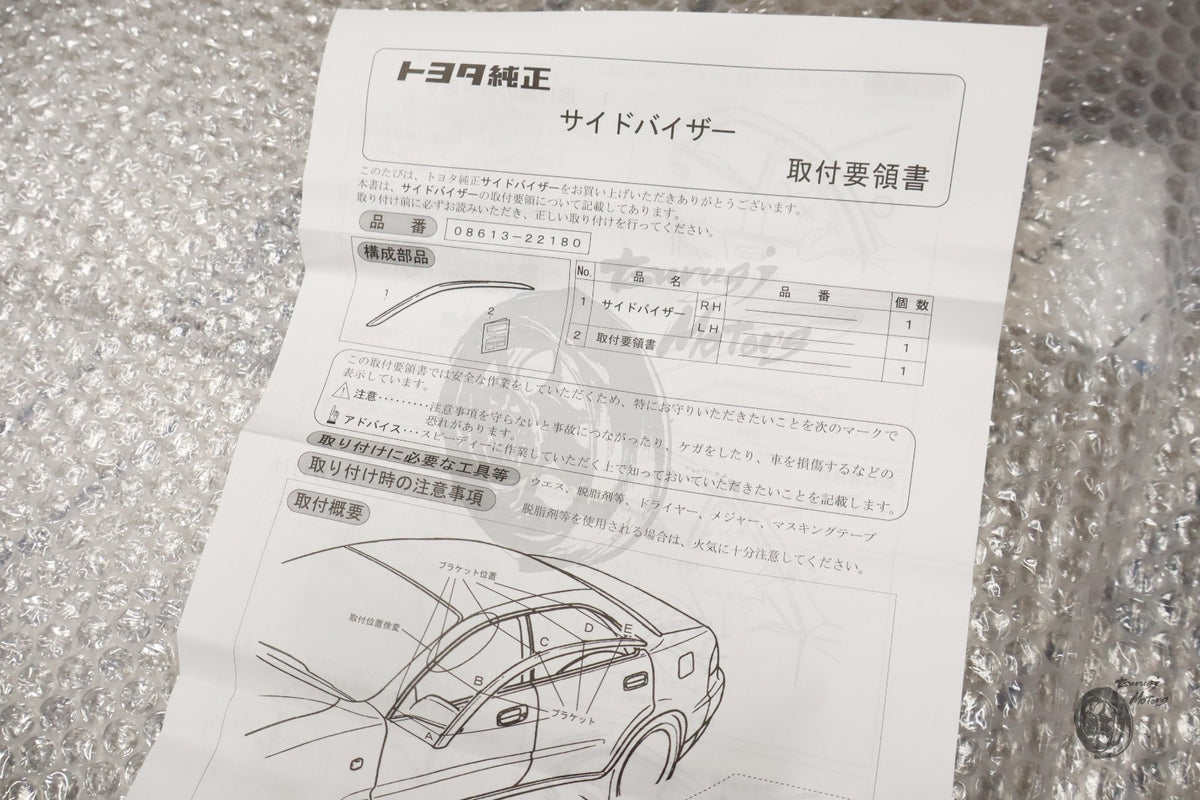 トヨタ純正
サイドバイザー
取付要領書
このたびは、トヨタ純正サイドバイザーをお買い上げいただきありがとうございます。
本書は、サイドバイザーの取付要領について記載してあります。
取り付け前に必ずお読みいただき、正しい取り付けを行ってください。
品 番 08613-22180
構成部品
1
2
No. 品 名 品 番 個 数
1 サイドバイザー RH 1
LH 1
2 取付要領書 1
この取付要領書では安全な作業をしていただくため、特にお守りいただきたいことを次のマークで
表示しています。
注意………注意事項を守らないと事故につながったり、ケガをしたり、車を損傷するなどの
恐れがあります。
アドバイス…スピーディーに作業していただく上で知っておいていただきたいことを記載します。
取り付けに必要な工具等 ウエス、脱脂剤等、ドライヤー、メジャー、マスキングテープ
取り付け時の注意事項 脱脂剤等を使用される場合は、火気に十分注意してください。
取付概要
ブラケット位置
取付位置
A
B
C
D
E
ブラケット
tsurugi
Motors
tsurugi
Motors